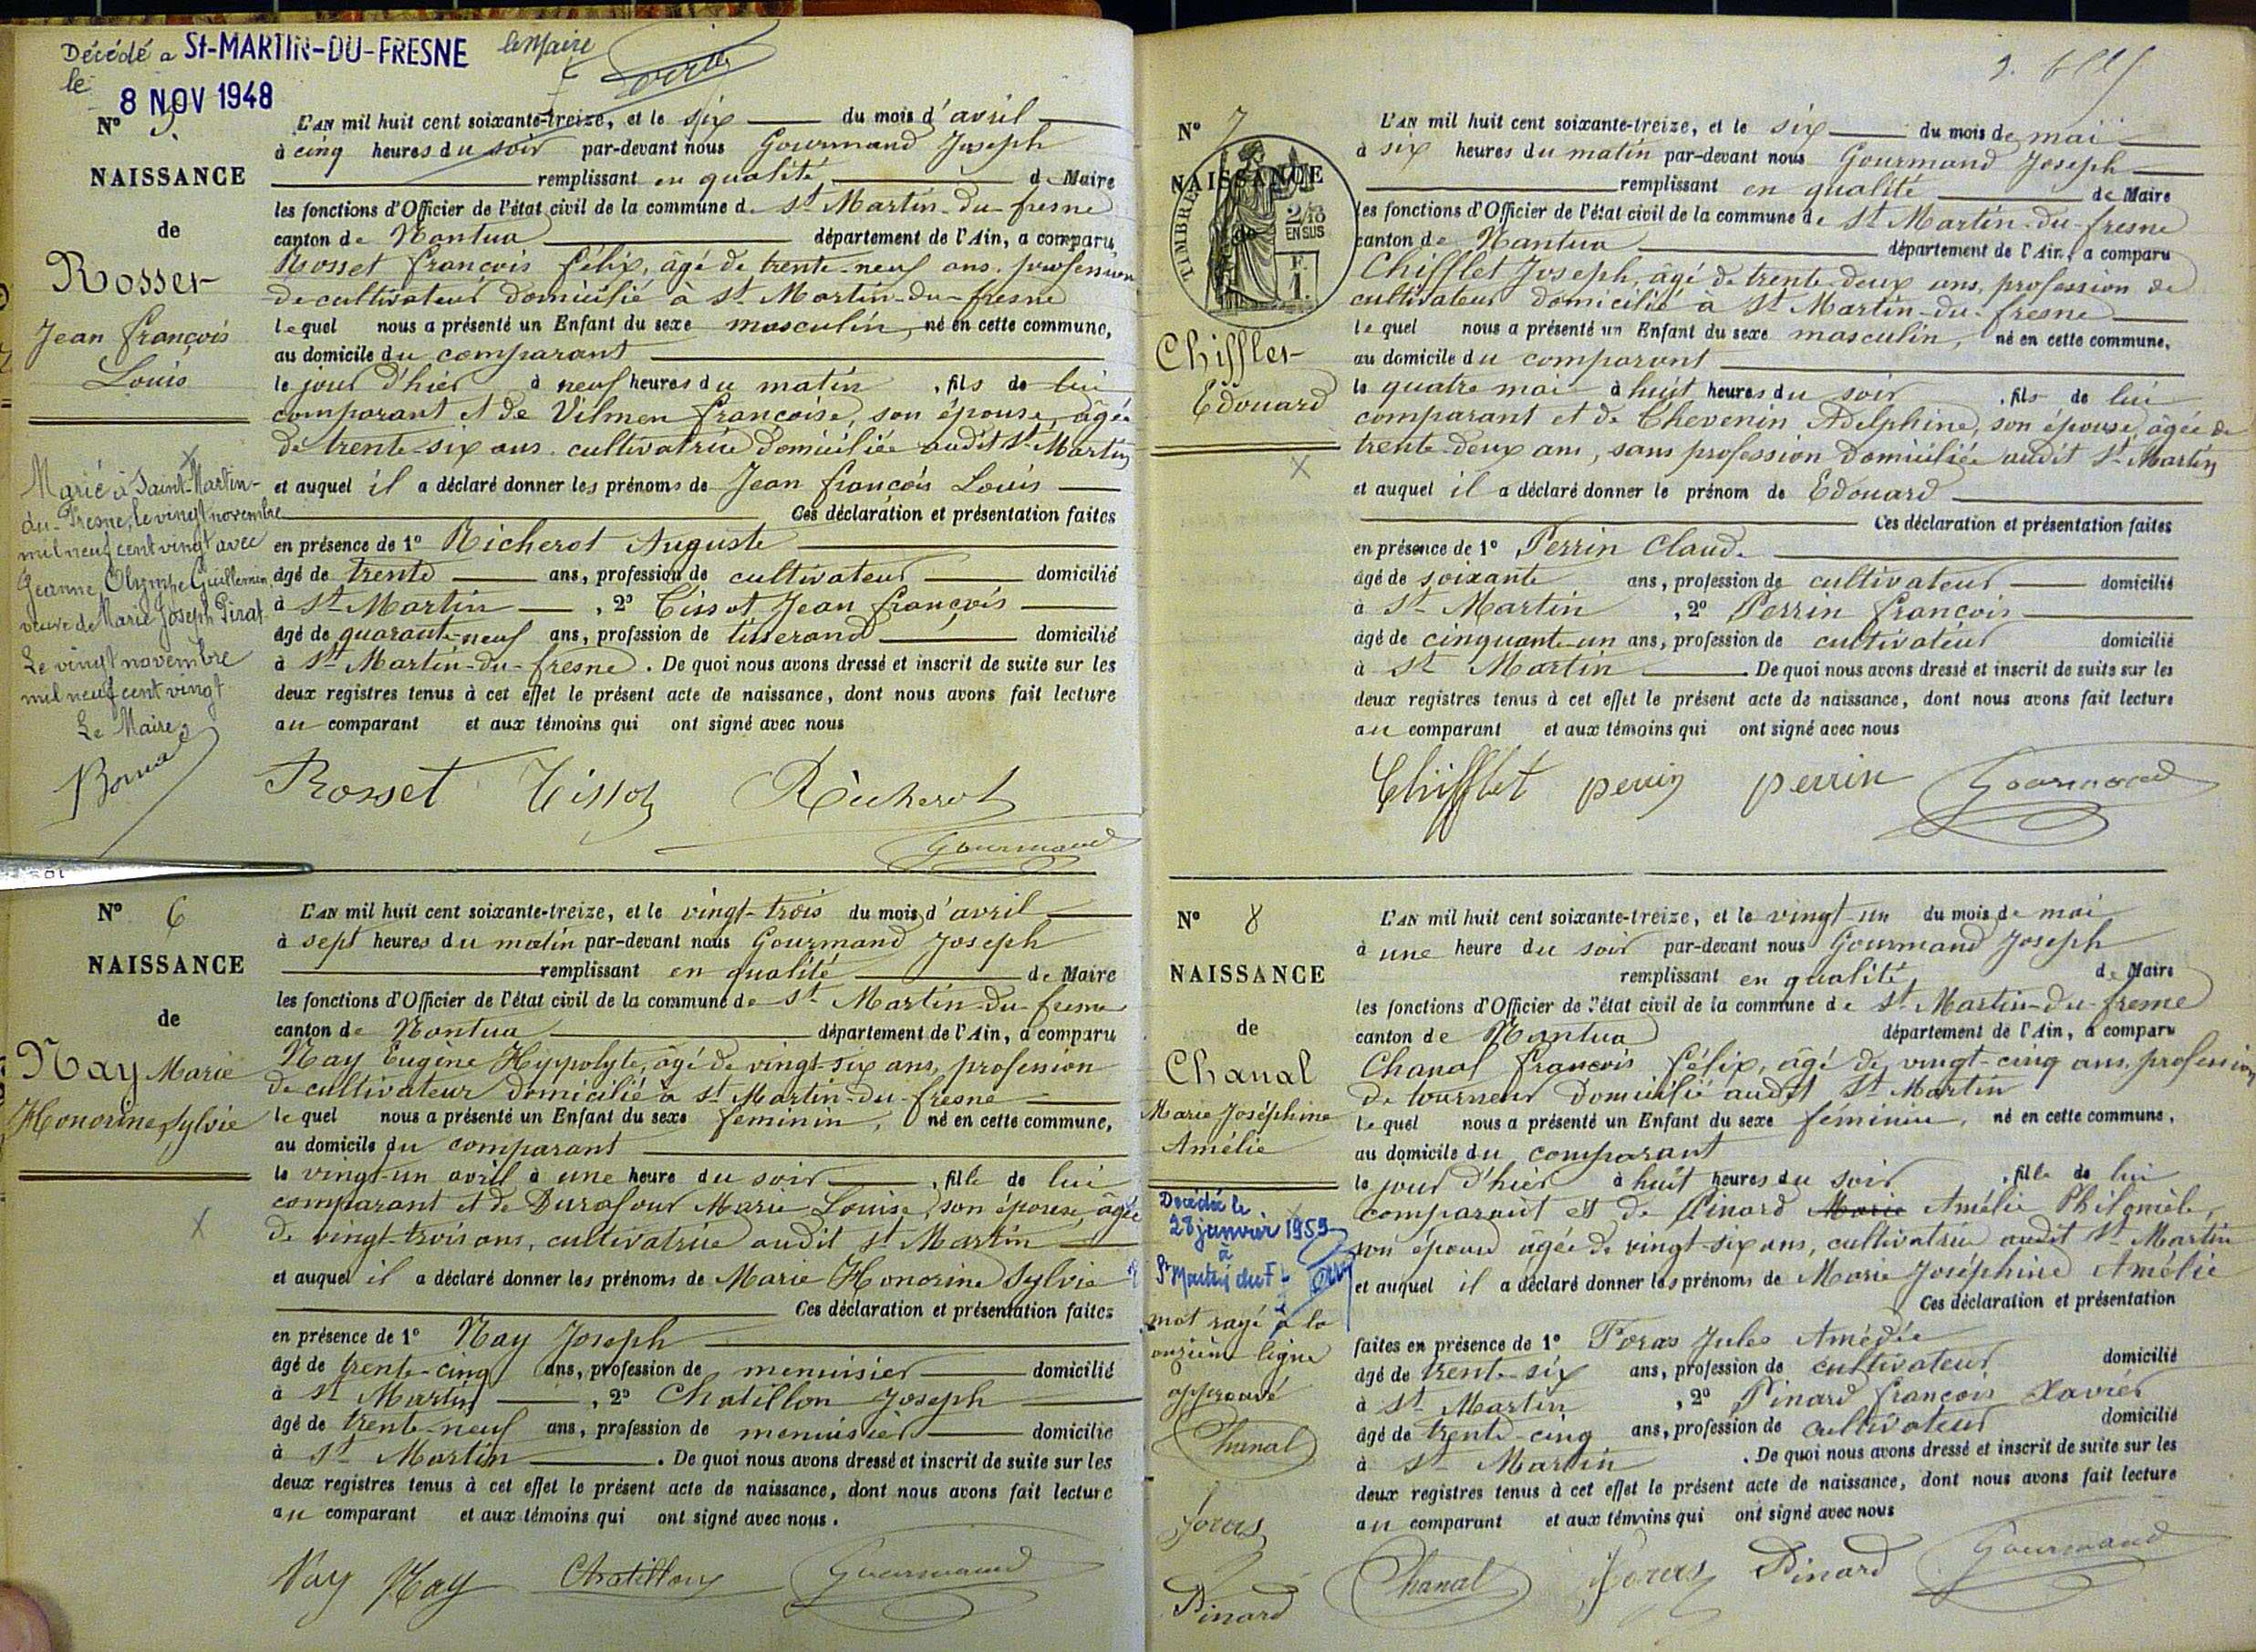 Décédé a St-MARTIN-DU-FRESNE le Maire
le 8 NOV 1948
N° 5.
NAISSANCE
de
Rosset
Jean françois
Louis
Marié à Saint-Martin-
du-Fresne, le vingt novembre
mil neuf cent vingt avec
Jeanne Olympe Guillemin
veuve de Marie Joseph Pirat.
Le vingt novembre
mil neuf cent vingt
Le Maire
L'AN mil huit cent soixante-treize, et le six du mois d'avril
à cinq heures du soir par-devant nous Gourmand Joseph
remplissant en qualité de Maire
les fonctions d'Officier de l'état civil de la commune de St Martin-du-fresne
canton de Nantua département de l'Ain, a comparu
Rosset françois félix, âgé de trente-neuf ans, profession
de cultivateur domicilié à St Martin-du-fresne
lequel nous a présenté un Enfant du sexe masculin, né en cette commune,
au domicile du comparant
le jour d'hier à neuf heures du matin, fils de lui
comparant et de Vilmen françoise, son épouse, âgée
de trente-six ans, cultivatrice domiciliée audit St Martin
et auquel il a déclaré donner les prénoms de Jean françois Louis
Ces déclaration et présentation faites
en présence de 1° Richerot Auguste
âgé de trente ans, profession de cultivateur domicilié
à St Martin, 2° Tissot Jean françois
âgé de quarante-neuf ans, profession de tisserand domicilié
à St Martin-du-fresne. De quoi nous avons dressé et inscrit de suite sur les
deux registres tenus à cet effet le présent acte de naissance, dont nous avons fait lecture
au comparant et aux témoins qui ont signé avec nous
Rosset Tissot Richerot
Gourmand
N° 6
NAISSANCE
de
Nay Marie
Honorine Sylvie
L'AN mil huit cent soixante-treize, et le vingt-trois du mois d'avril
à sept heures du matin par-devant nous Gourmand Joseph
remplissant en qualité de Maire
les fonctions d'Officier de l'état civil de la commune de St Martin-du-fresne
canton de Nantua département de l'Ain, a comparu
Nay Eugène Hyppolyte, âgé de vingt-six ans, profession
de cultivateur domicilié à St Martin-du-fresne
lequel nous a présenté un Enfant du sexe féminin, né en cette commune,
au domicile du comparant
le vingt-un avril à une heure du soir, fille de lui
comparant et de Durafour Marie Louise, son épouse, âgée
de vingt-trois ans, cultivatrice audit St Martin
et auquel il a déclaré donner les prénoms de Marie Honorine Sylvie
Ces déclaration et présentation faites
en présence de 1° Nay Joseph
âgé de trente-cinq ans, profession de menuisier domicilié
à St Martin, 2° Chatillon Joseph
âgé de trente-neuf ans, profession de menuisier domicilié
à St Martin. De quoi nous avons dressé et inscrit de suite sur les
deux registres tenus à cet effet le présent acte de naissance, dont nous avons fait lecture
au comparant et aux témoins qui ont signé avec nous.
Nay Nay Chatillon Gourmand
N° 7
NAISSANCE
de
TIMBRE
2/10
EN SUS
F.
1.
Chifflet
Edouard
L'AN mil huit cent soixante-treize, et le six du mois de mai
à six heures du matin par-devant nous Gourmand Joseph
remplissant en qualité de Maire
les fonctions d'Officier de l'état civil de la commune de St Martin-du-fresne
canton de Nantua département de l'Ain, a comparu
Chifflet Joseph, âgé de trente-deux ans, profession de
cultivateur domicilié à St Martin-du-fresne
lequel nous a présenté un Enfant du sexe masculin, né en cette commune,
au domicile du comparant
le quatre mai à huit heures du soir, fils de lui
comparant et de Thevenin Adelphine, son épouse, âgée de
trente-deux ans, sans profession domiciliée audit St Martin
et auquel il a déclaré donner le prénom de Edouard
Ces déclaration et présentation faites
en présence de 1° Perrin Claude
âgé de soixante ans, profession de cultivateur domicilié
à St Martin, 2° Perrin françois
âgé de cinquante-un ans, profession de cultivateur domicilié
à St Martin. De quoi nous avons dressé et inscrit de suite sur les
deux registres tenus à cet effet le présent acte de naissance, dont nous avons fait lecture
au comparant et aux témoins qui ont signé avec nous
Chifflet perrin perrin Gourmand
N° 8
NAISSANCE
de
Chanal
Marie Joséphine
Amélie
Décédée le
28 janvier 1959
à
St Martin du F
mot rayé à la
onzième ligne
approuvé
Chanal
Foras
Pinard
L'AN mil huit cent soixante-treize, et le vingt-un du mois de mai
à une heure du soir par-devant nous Gourmand Joseph
remplissant en qualité de Maire
les fonctions d'Officier de l'état civil de la commune de St Martin-du-fresne
canton de Nantua département de l'Ain, a comparu
Chanal françois félix, âgé de vingt-cinq ans, profession
de tourneur domicilié audit St Martin
lequel nous a présenté un Enfant du sexe féminin, né en cette commune,
au domicile du comparant
le jour d'hier à huit heures du soir, fille de lui
comparant et de Pinard Marie Amélie Philomèle,
son épouse âgée de vingt-six ans, cultivatrice audit St Martin
et auquel il a déclaré donner les prénoms de Marie Joséphine Amélie
Ces déclaration et présentation
faites en présence de 1° Foras Jules Amédée
âgé de trente-six ans, profession de cultivateur domicilié
à St Martin, 2° Pinard françois Xavier
âgé de trente-cinq ans, profession de cultivateur domicilié
à St Martin. De quoi nous avons dressé et inscrit de suite sur les
deux registres tenus à cet effet le présent acte de naissance, dont nous avons fait lecture
au comparant et aux témoins qui ont signé avec nous
Chanal Foras Pinard Gourmand